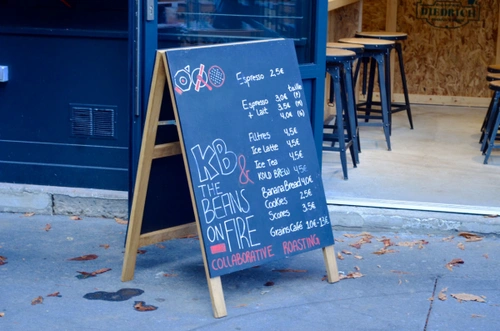 DIEDRICH
Espresso 2,5€
taille
Espresso 3,0€ (P)
+ Lait 3,5€ (M)
4,0€
Filtres 4,5€
Ice Latte 4,5€
Ice Tea 4,5€
KOLD BREW 4,5€
Banana Bread 4,0€
Cookies 2,5€
Scones 3,5€
Grains Café 10€-15€
KB &
THE
BEANS
ON FIRE
COLLABORATIVE ROASTING